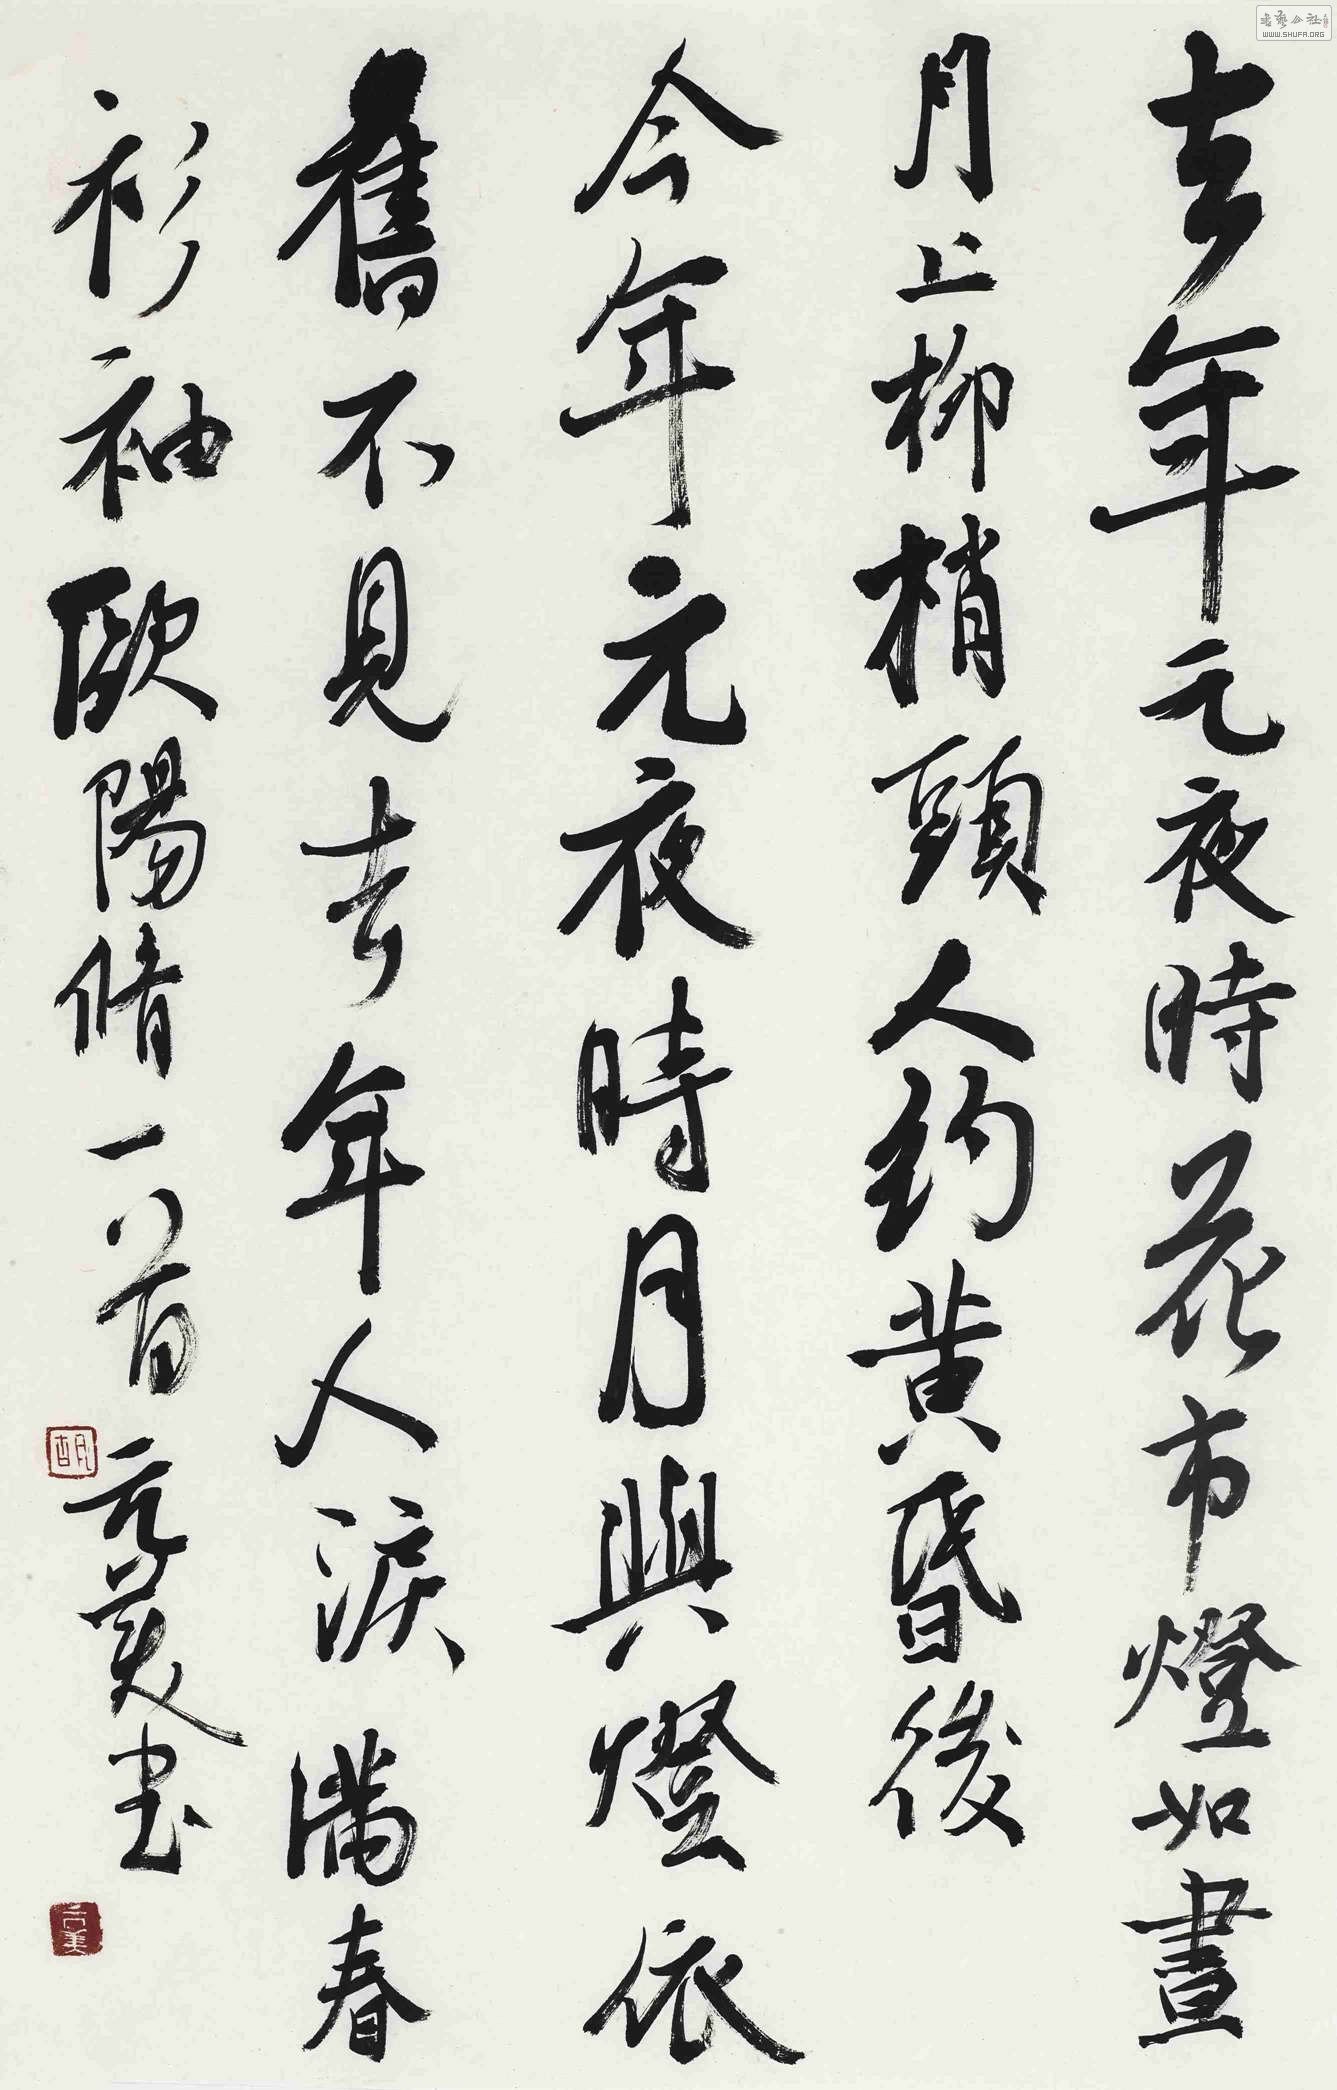 去年元夜時花市燈如晝
月上柳梢頭人約黄昏後
今年元夜時月與燈依
舊不見去年人淚滿春
衫袖歐陽脩一首元美书
WWW.SHUFA.ORG